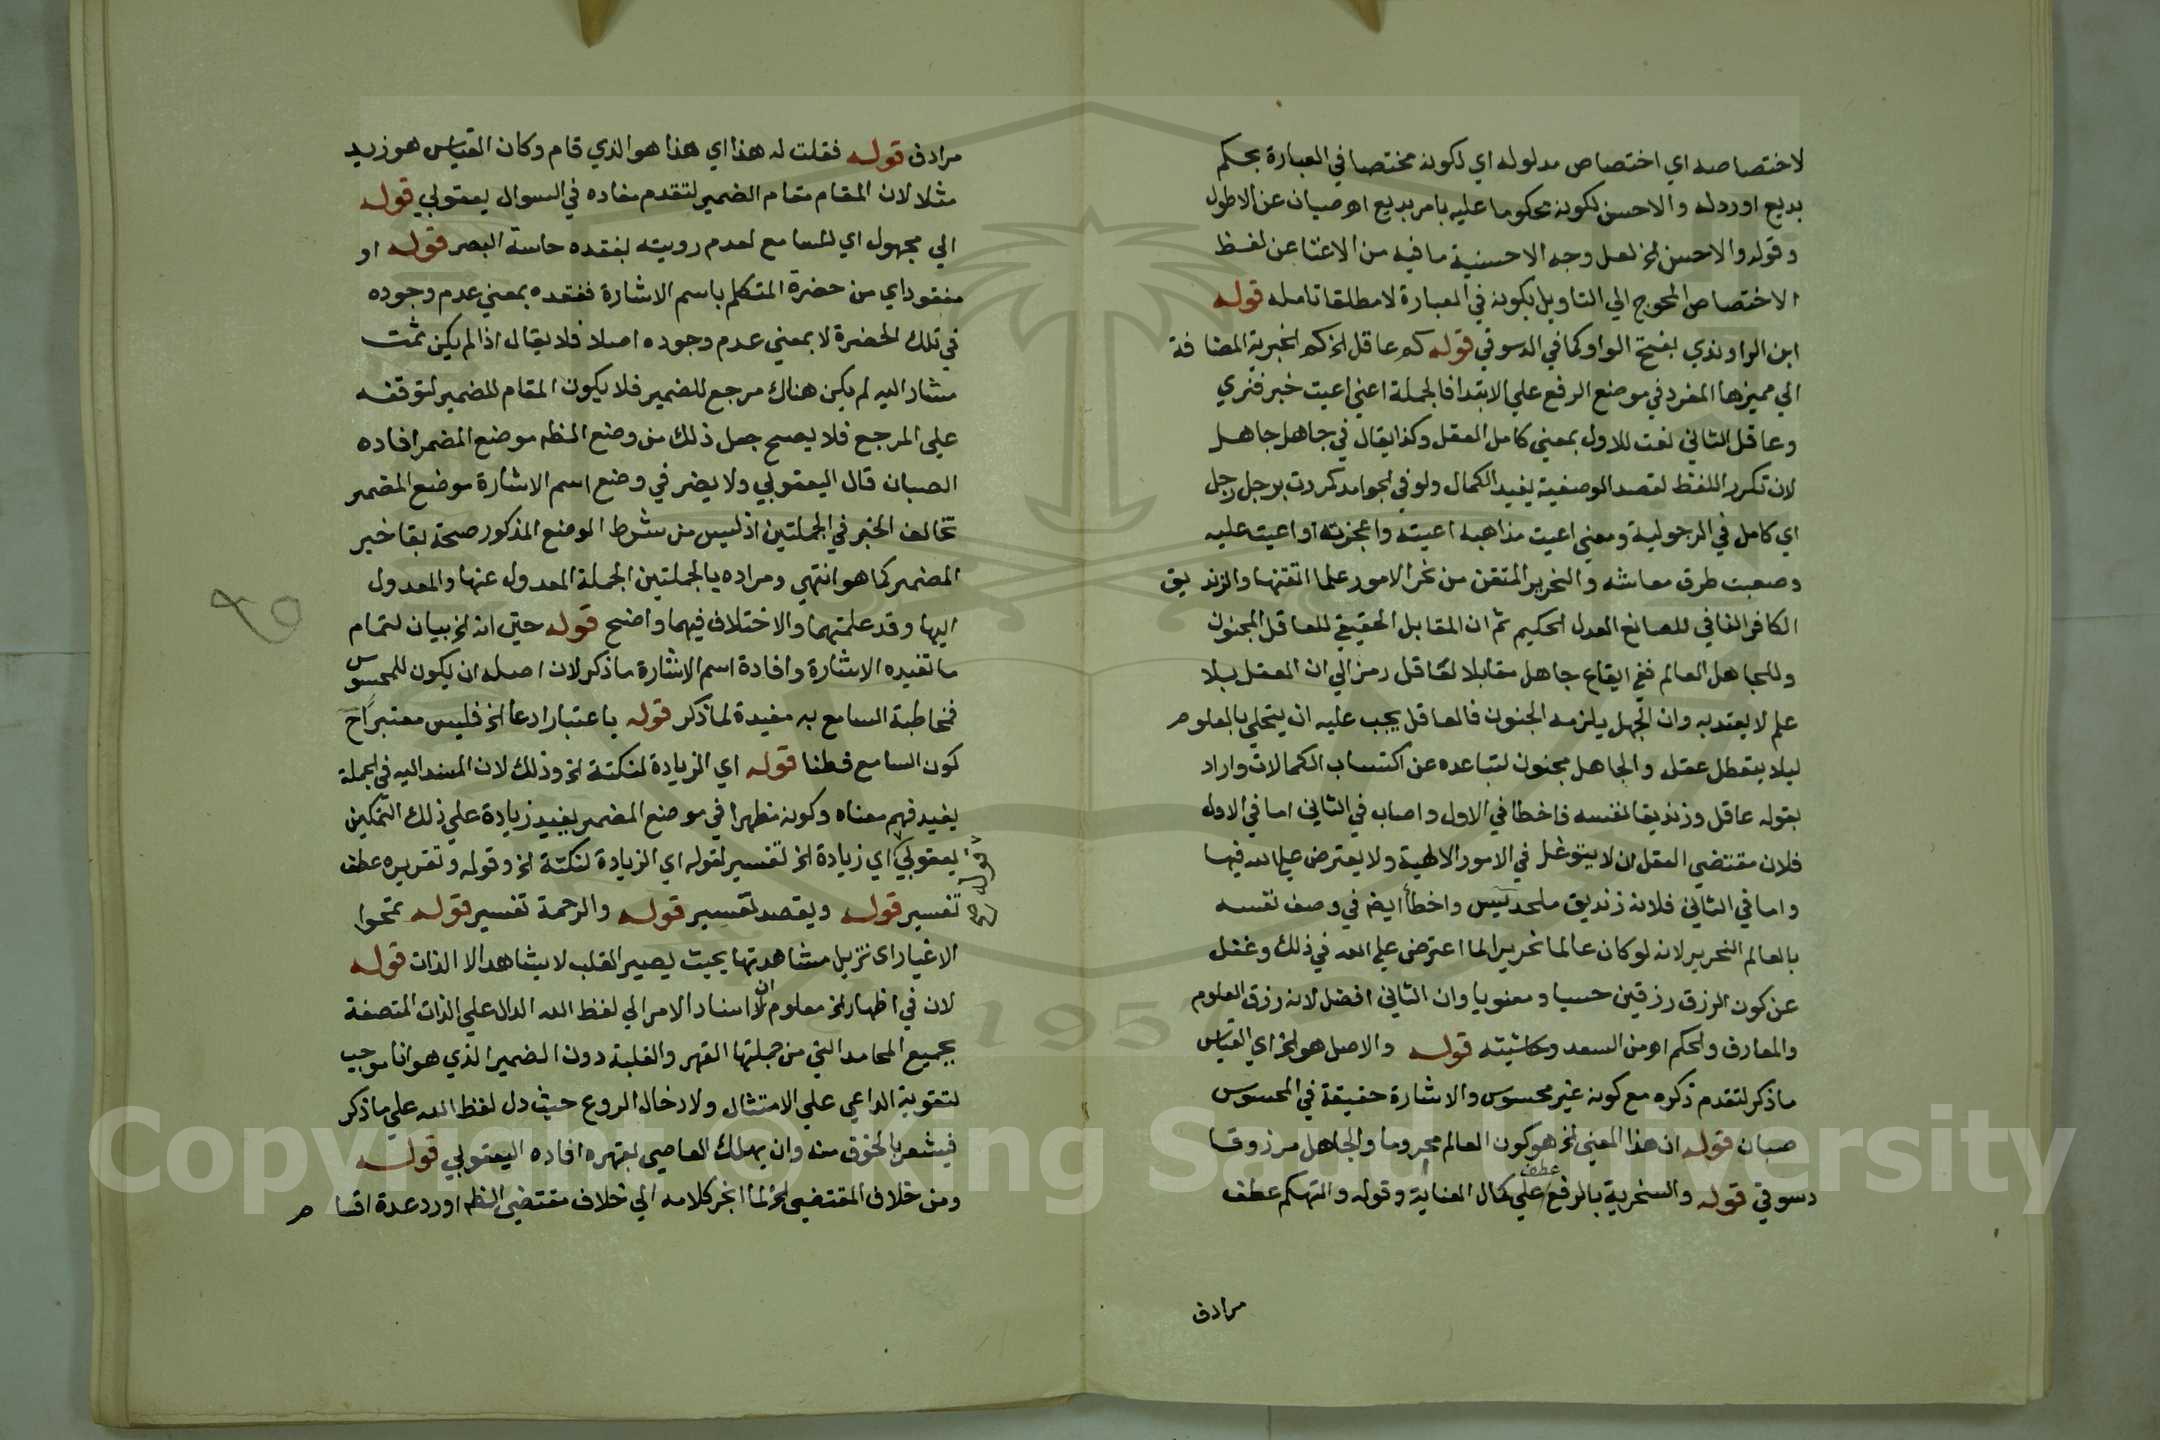 لاختصاصه اي اختصاص مدلوله اي لكونه مختصا في العبارة بحكم
بديع اوردله والاحسن لكونه محكوما عليه بامر بديع اهـ صبان عن الاطول
وقوله والاحسن الخ لعل وجه الاحسنية ما فيه من الاغنا عن لفظ
الاختصاص المحوج الي التاويل بكونه في العبارة لا مطلقا تامله قوله
ابن الراوندي بفتح الواو كما في الدسوقي قوله كم عاقل الخ كم الخبرية المضافة
الي مميزها المفرد في موضع الرفع علي الابتدا فالجملة اعني اعيت خبر فنري
وعاقل الثاني نعت للاول بمعني كامل العقل وكذا يقال في جاهل جاهل
لان تكرر اللفظ لقصد الوصفية يفيد الكمال ولو في الجوامد كررت برجل رجل
اي كامل في الرجولية ومعني اعيت مذاهبه اعيته واعجزته او اعيت عليه
وصعبت طرق معاشه والنحرير المتقن من نحر الامور علما اتقنها والزنديق
الكافر النافي للصانع العدل الحكيم ثم ان المقابل الحقيقي للعاقل المجنون
وللجاهل العالم ففي ايقاع جاهل مقابلا لعاقل رمز الي ان العقل بلا
علم لا يعتد به وان الجهل يلزمه الجنون فالعاقل يجب عليه ان يتحلي بالعلوم
ليلا يتعطل عقله والجاهل مجنون لتباعده عن اكتساب الكمالات واراد
بقوله عاقل وزنديقا نفسه فاخطا في الاول واصاب في الثاني اما في الاول
فلان مقتضي العقل ان لا يتوغل في الامور الالهية ولا يعترض علي الله فيها
واما في الثاني فلانه زنديق ملحد واخطأ ايضا في وصف نفسه
بالعالم النحرير لانه لو كان عالما نحريرا لما اعترض علي الله في ذلك وغفل
عن كون الرزق رزقين حسيا ومعنويا وان الثاني افضل لانه رزق العلوم
والمعارف والحكم اهـ من السعد وحاشيته قوله والاصل هو الخ اي القياس
ماذكر لتقدم ذكره مع كونه غير محسوس والاشارة حقيقة في المحسوس
صبان قوله ان هذا المعني الخ هو كون العالم محروما والجاهل مرزوقا
دسوقي قوله والسخرية بالرفع عطف علي كمال العناية وقوله والتهكم عطف
مرادف
مرادف قوله فقلت له هذا اي هذا هو الذي قام وكان القياس هو زيد
مثلا لان المقام مقام الضمير لتقدم مفاده في السوال يعقوبي قوله
الي مجهول اي للسامع لعدم رويته لفقده حاسة البصر قوله او
مفقود اي من حضرة المتكلم باسم الاشارة ففقده بمعني عدم وجوده
في تلك الحضرة لا بمعني عدم وجوده اصلا فلا يقال اذا لم يكن ثمت
مشار اليه لم يكن هناك مرجع للضمير فلا يكون المقام للضمير لتوقفه
علي المرجع فلا يصح جعل ذلك من وضع المظهر موضع المضمر افاده
الصبان قال اليعقوبي ولا يضر في وضع اسم الاشارة موضع المضمر
تخالف الخبر في الجملتين اذ ليس من شرط الوضع المذكور صحة بقا خبر
المضمر كما هو انتهي ومراده بالجملتين الجملة المعدول عنها والمعدول
اليها وقد علمتهما والاختلاف فيهما واضح قوله حتي انه الخ بيان لتمام
ما تفيده الاشارة وافادة اسم الاشارة ماذكر لان اصله ان يكون للمحسوس
فمخاطبة السامع به مفيدة لما ذكر قوله باعتبار ادعا الخ فليس معتبرا ح
كون السامع فطنا قوله اي الزيادة لنكتة الخ وذلك لان المسند اليه في الجملة
يفيد فهم معناه وكونه مظهرا في موضع المضمر يفيد زيادة علي ذلك التمكين
يعقوبي اي زيادة الخ تفسير لقوله اي الزيادة لنكتة الخ وقوله وتقريره عطف
قوله اي
تفسير قوله ويقصد تفسير قوله والرحمة تفسير قوله تمحوا
الاغيار اي تزيل مشاهدتها بحيث يصير القلب لا يشاهد الا الذات قوله
لان في اظهار الخ معلوم ان اسناد الامر الي لفظ الله الدال علي الذات المتصفة
بجميع المحامد التي من جملتها القهر والغلبة دون الضمير الذي هو انا موجب
لتقوية الداعي علي الامتثال ولادخال الروع حيث دل لفظ الله علي ماذكر
فيشعر بالخوف منه وان يهلك العاصي بقهره افاده اليعقوبي قوله
ومن خلاف المقتضي الخ لما انجر كلامه الي خلاف مقتضي الظهر اورد عدة اقسام